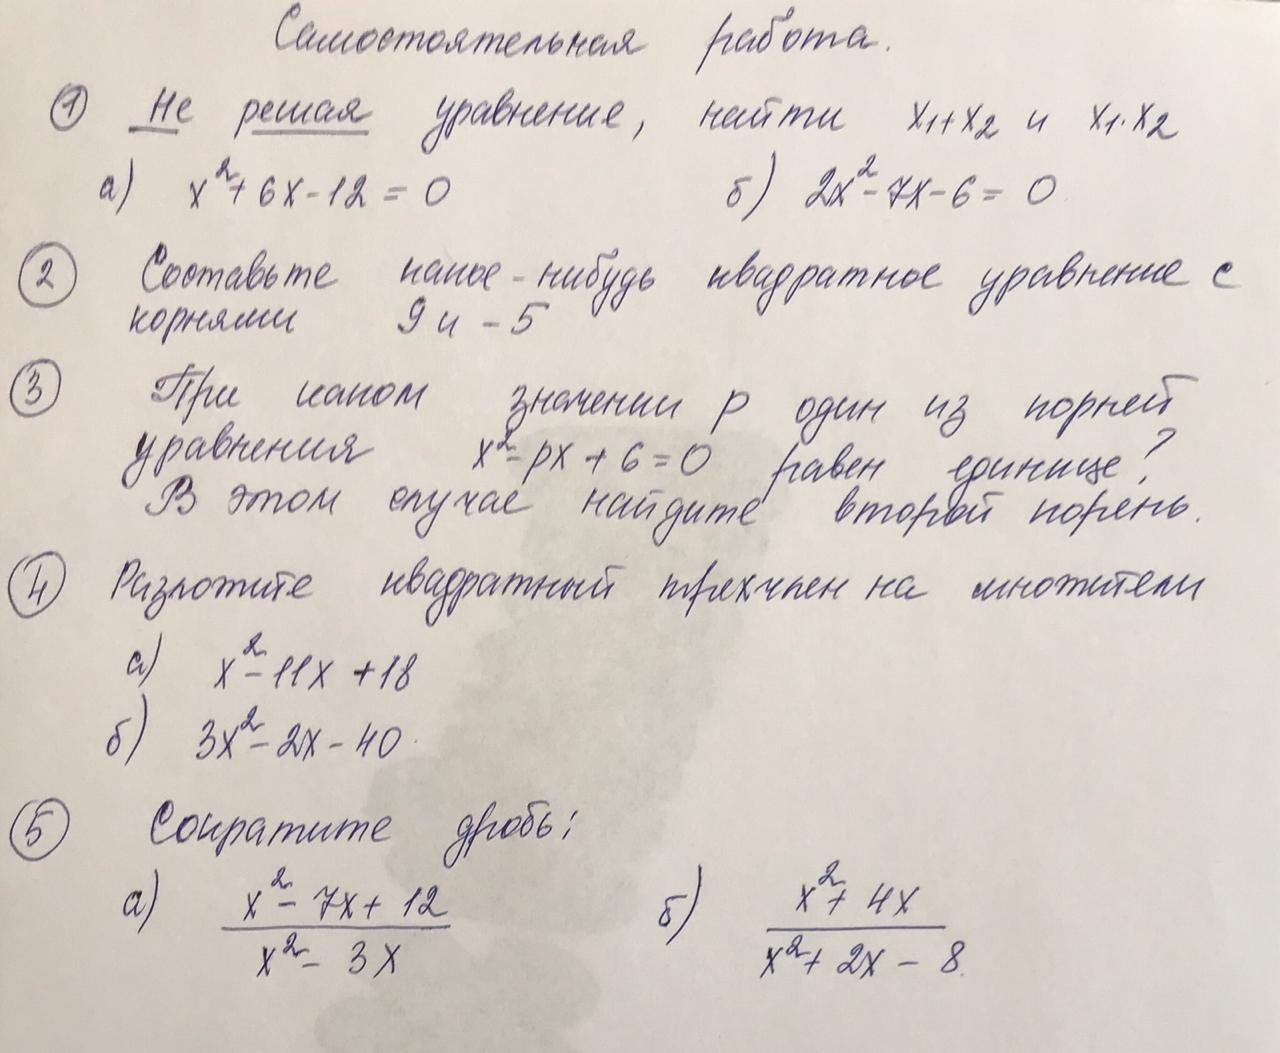 Самостоятельная работа.
1 Не решая уравнение, найти x₁+x₂ и x₁·x₂
а) x²+6x-12=0 б) 2x²-7x-6=0
2 Составьте какое-нибудь квадратное уравнение с
корнями 9 и -5
3 При каком значении p один из корней
уравнения x²-px+6=0 равен единице?
В этом случае найдите второй корень.
4 Разложите квадратный трехчлен на множители
а) x²-11x+18
б) 3x²-2x-40
5 Сократите дробь:
а) x²-7x+12 б) x²+4x
x²-3x x²+2x-8